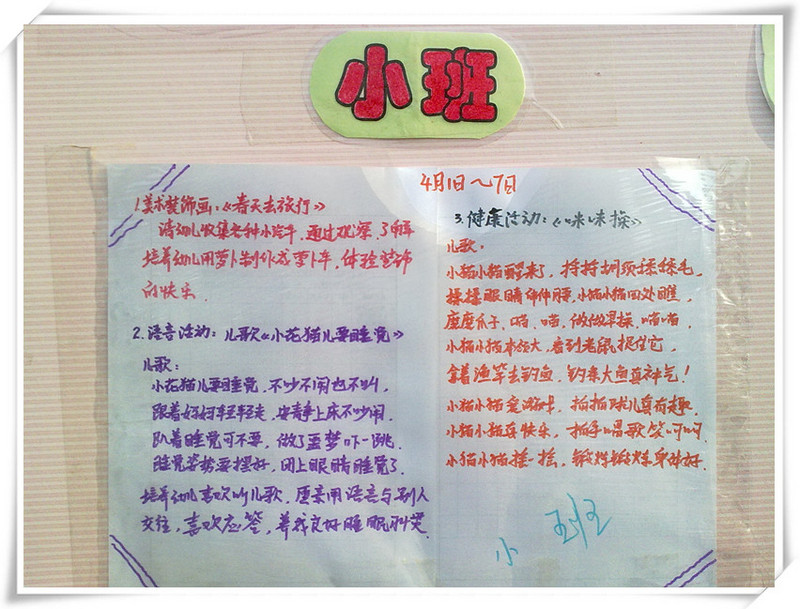 小班
4月1日~7日
1.美术装饰画:《春天去旅行》
请幼儿收集各种小汽车,通过观察,了解
培养幼儿用萝卜制作成萝卜车,体验装饰
的快乐.
2.语言活动:儿歌《小花猫儿要睡觉》
儿歌:
小花猫儿要睡觉,不吵不闹也不叫,
跟着妈妈轻轻走,安静上床不吵闹.
趴着睡觉可不要,做了噩梦吓一跳.
睡觉姿势要摆好,闭上眼睛睡觉了.
培养幼儿喜欢听儿歌.愿意用语言与别人
交往,喜欢应答,养成良好睡眠
3.健康活动:《咪咪操》
儿歌:
小猫小猫醒来了,捋捋胡须揉揉毛,
揉揉眼睛伸伸腰,小猫小猫四处瞧,
磨磨爪子,喵,喵,做做早操,喵喵,
小猫小猫本领大,看到老鼠捉住它,
拿着渔竿去钓鱼,钓来大鱼真神气!
小猫小猫爱游戏,拍拍球儿真有趣.
小猫小猫真快乐,拍手唱歌笑呵呵.
小猫小猫摇一摇,锻炼锻炼身体好.
小班